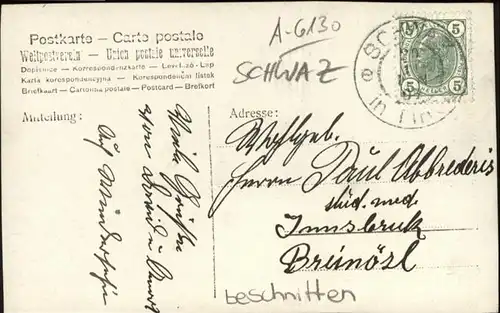 Postkarte - Carte postale
Weltpostverein - Union postale universelle
Dopisnice - Korrespondenzkarte - Levelező-Lap
Karta korespondencyjna - Korespondenční lístek
Briefkaart - Cartolina postale - Postcard - Brefkort
A-6130
SCHWAZ
5 5
5 5
SCHWAZ
in Tirol
Mitteilung:
Viele Grüße
von
Auf Wiedersehen
Adresse:
Wohlgeb.
Herrn Paul Abbrederis
stud. med
Innsbruck
Breinössl
beschnitten